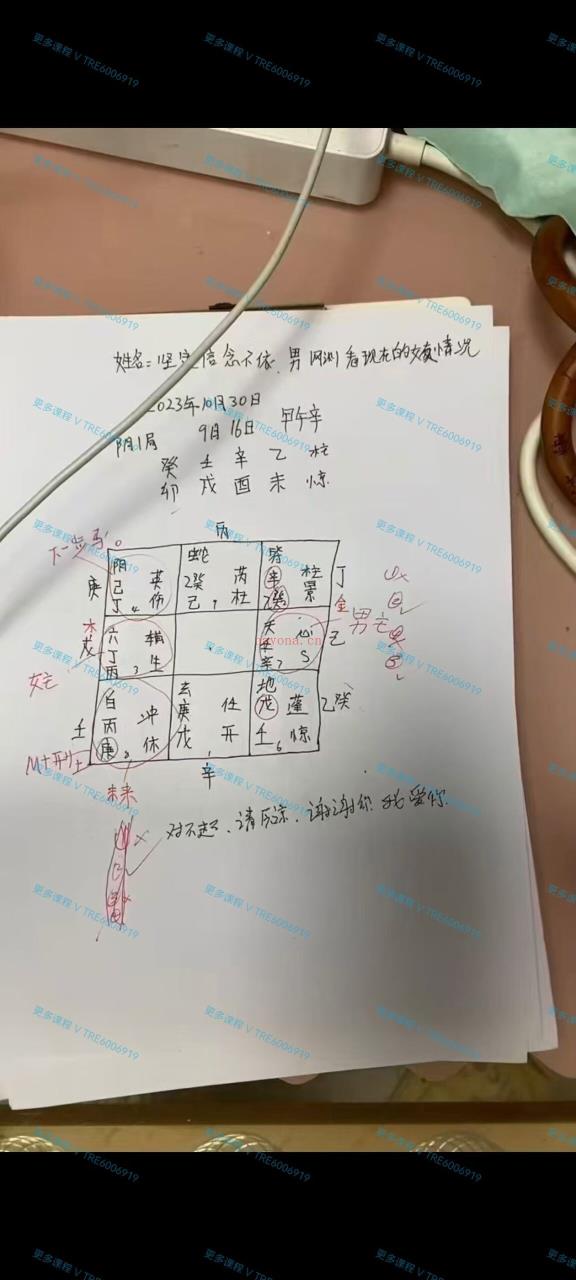 更多课程 V TRE6006919
姓名:坚定信念不依 男 网测 看现在的女友情况
2023年10月30日
阴1局 9月16日 甲午辛
癸 壬 辛 乙 柱
卯 戌 酉 未 惊
下一步 马 。
丙
庚 阴 己 丁 4 英 伤
蛇 乙癸 己 9 芮 杜
辛 乙癸 柱 景 丁
木 戊 六 丁 丙 3 辅 生
女宅
壬 辛 7 心 S 己 金 男宅
壬 白 丙 庚 8 冲 休
玄 庚 戊 1 任 开
地 戊 壬 6 蓬 惊 乙癸
M+开+土
辛
未来
对不起、请原谅、谢谢你 我爱你